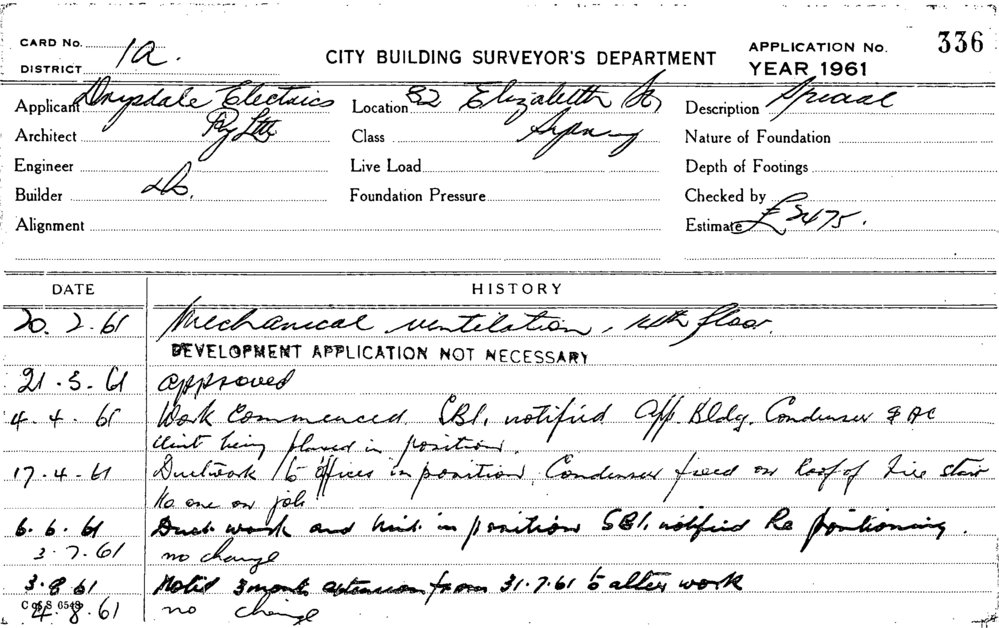 CARD No. 1a.
DISTRICT
CITY BUILDING SURVEYOR'S DEPARTMENT
APPLICATION No. 336
YEAR 1961
Applicant Drysdale Electrics Location 82 Elizabeth St, Description Special
Architect Pty Ltd Class Sydney Nature of Foundation
Engineer Live Load Depth of Footings
Builder do. Foundation Pressure Checked by
Alignment Estimate £2475.
DATE HISTORY
20.2.61 Mechanical ventilation, floor.
DEVELOPMENT APPLICATION NOT NECESSARY
21.3.61 approved
4.4.61 Work Commenced. SBI. notified Opp. Bldg. Condenser & AC
Unit being placed in position.
17.4.61 Ductwork to offices in position, Condenser fixed on Roof of Fire stair
No one on job
6.6.61 Duct work and Unit in position SBI. notified Re positioning.
3.7.61 no change
3.8.61 Noted 3 month extension from 31.7.61 to alter work
C of S
4.8.61 no change